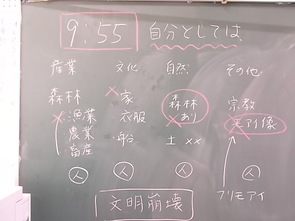 9:55 自分としては
産業 文化 自然 その他
森林 ×家 森林 宗教
×漁業 衣服 ×あり モアイ像
農業 船 土 ××
畜産
人 人 人 人
文明崩壊 プリモアイ